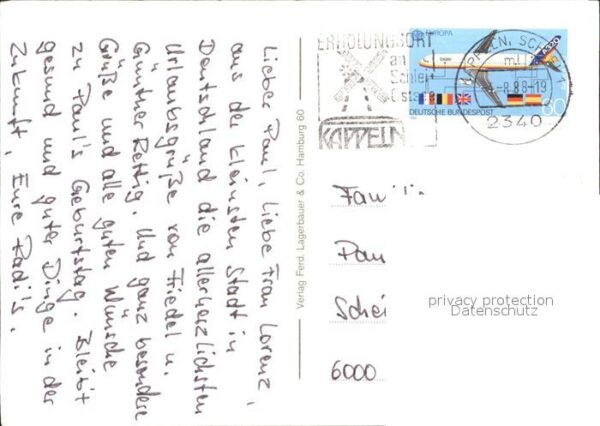 Lieber Paul, liebe Frau Lorenz,
aus der kleinsten Stadt in
Deutschland die allerherzlichsten
Urlaubsgrüße von Friedel u.
Günther Rettig. Und ganz besondere
Grüße und alle guten Wünsche
zu Paul's Geburtstag. Bleibt
gesund und guter Dinge in der
Zukunft, Eure Radi's.
Verlag Ferd. Lagerbauer & Co. Hamburg 60
ERHOLUNGSORT
an
Schlei
Ostsee
KAPPELN
EUROPA
60
DEUTSCHE BUNDESPOST
KAPPELN, SCHLEI 1
ml
-8.8.88-19
2340
Famili
Pau
Schei
6000
privacy protection
Datenschutz